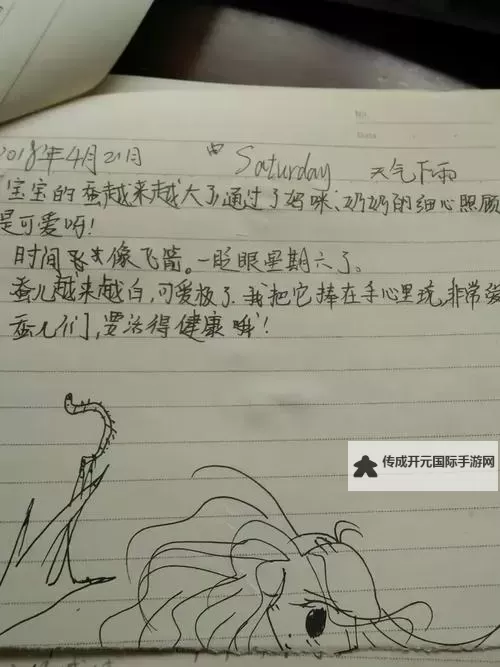 No.
Date
2018年4月21日 Saturday 天气下雨
宝宝的蚕越来越大了,通过了妈咪、奶奶的细心照顾
是可爱呀!
时间飞快像飞箭。一眨眼星期六了。
蚕儿越来越白,可爱极了.我把它捧在手心里玩,非常
蚕儿们,要活得健康哦!
传成开元国际手游网